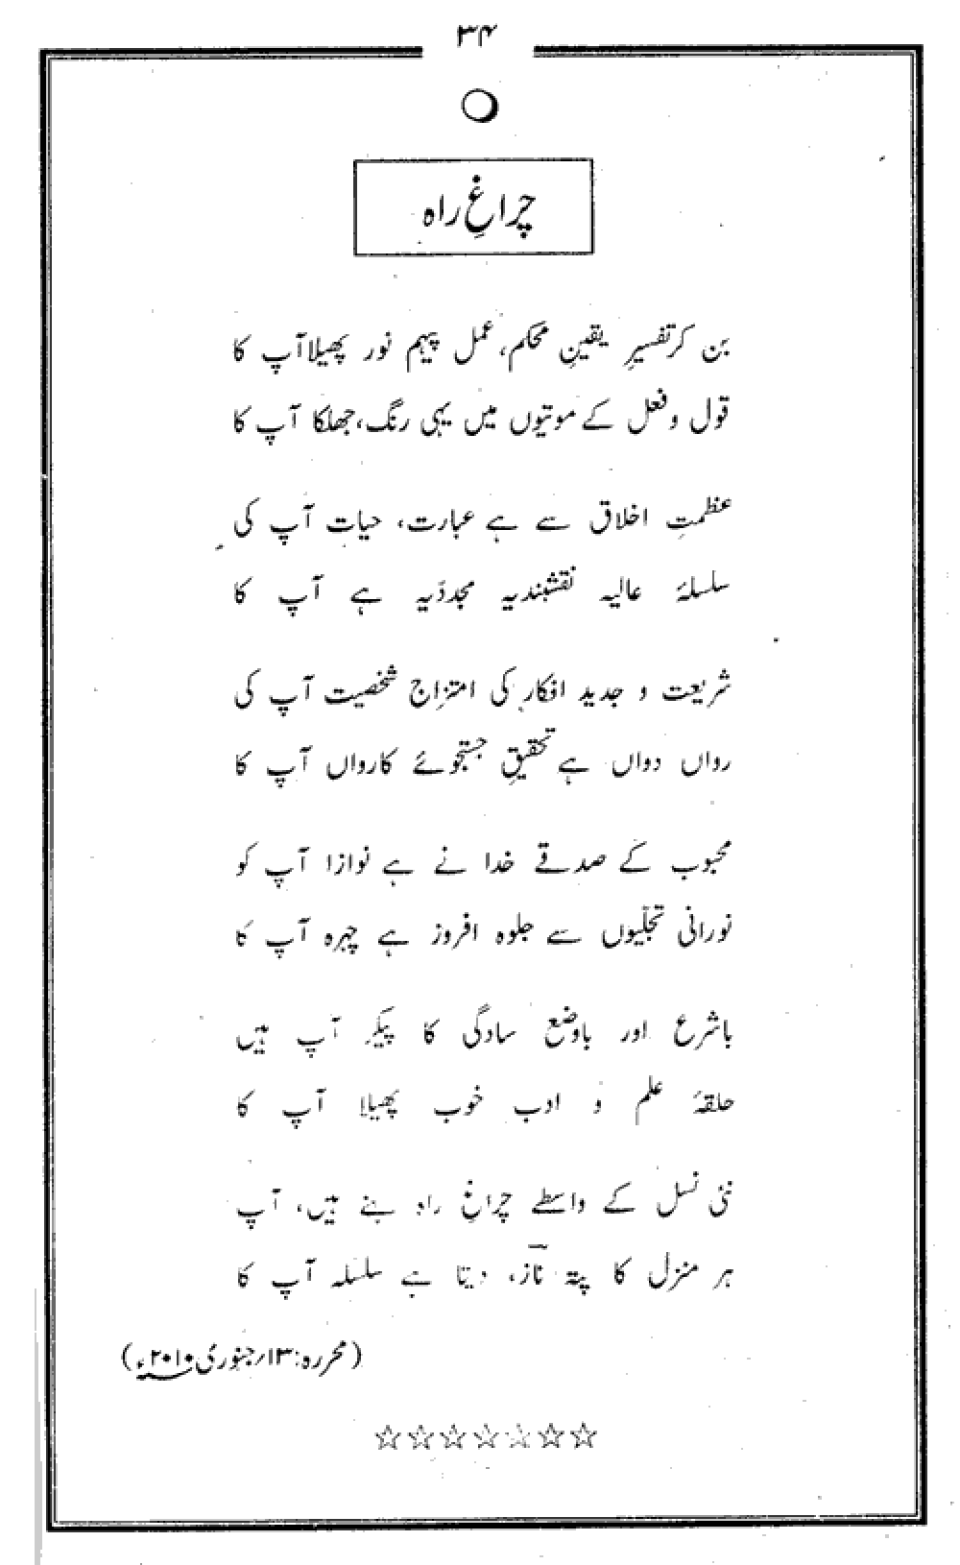 ۳۴
چراغِ راہ
بن کر تفسیرِ یقینِ محکم، عمل پیہم نور پھیلا آپ کا
قول و فعل کے موتیوں میں یہی رنگ، جھلکا آپ کا
عظمتِ اخلاق سے ہے عبارت، حیات آپ کی
سلسلۂ عالیہ نقشبندیہ مجددّیہ ہے آپ کا
شریعت و جدید افکار کی امتزاج شخصیت آپ کی
رواں دواں ہے تحقیقِ جستجوئے کارواں آپ کا
محبوب کے صدقے خدا نے ہے نوازا آپ کو
نورانی تجلّیوں سے جلوہ افروز ہے چہرہ آپ کا
باشرع اور باوضع سادگی کا پیکر آپ ہیں
حلقۂ علم و ادب خوب پھیلا آپ کا
نئی نسل کے واسطے چراغِ راہ بنے ہیں، آپ
ہر منزل کا پتہ نازؔ، دیتا ہے سلسلہ آپ کا
(محررہ: ۱۳؍جنوری ۲۰۱۰ء)
☆☆☆☆☆☆☆